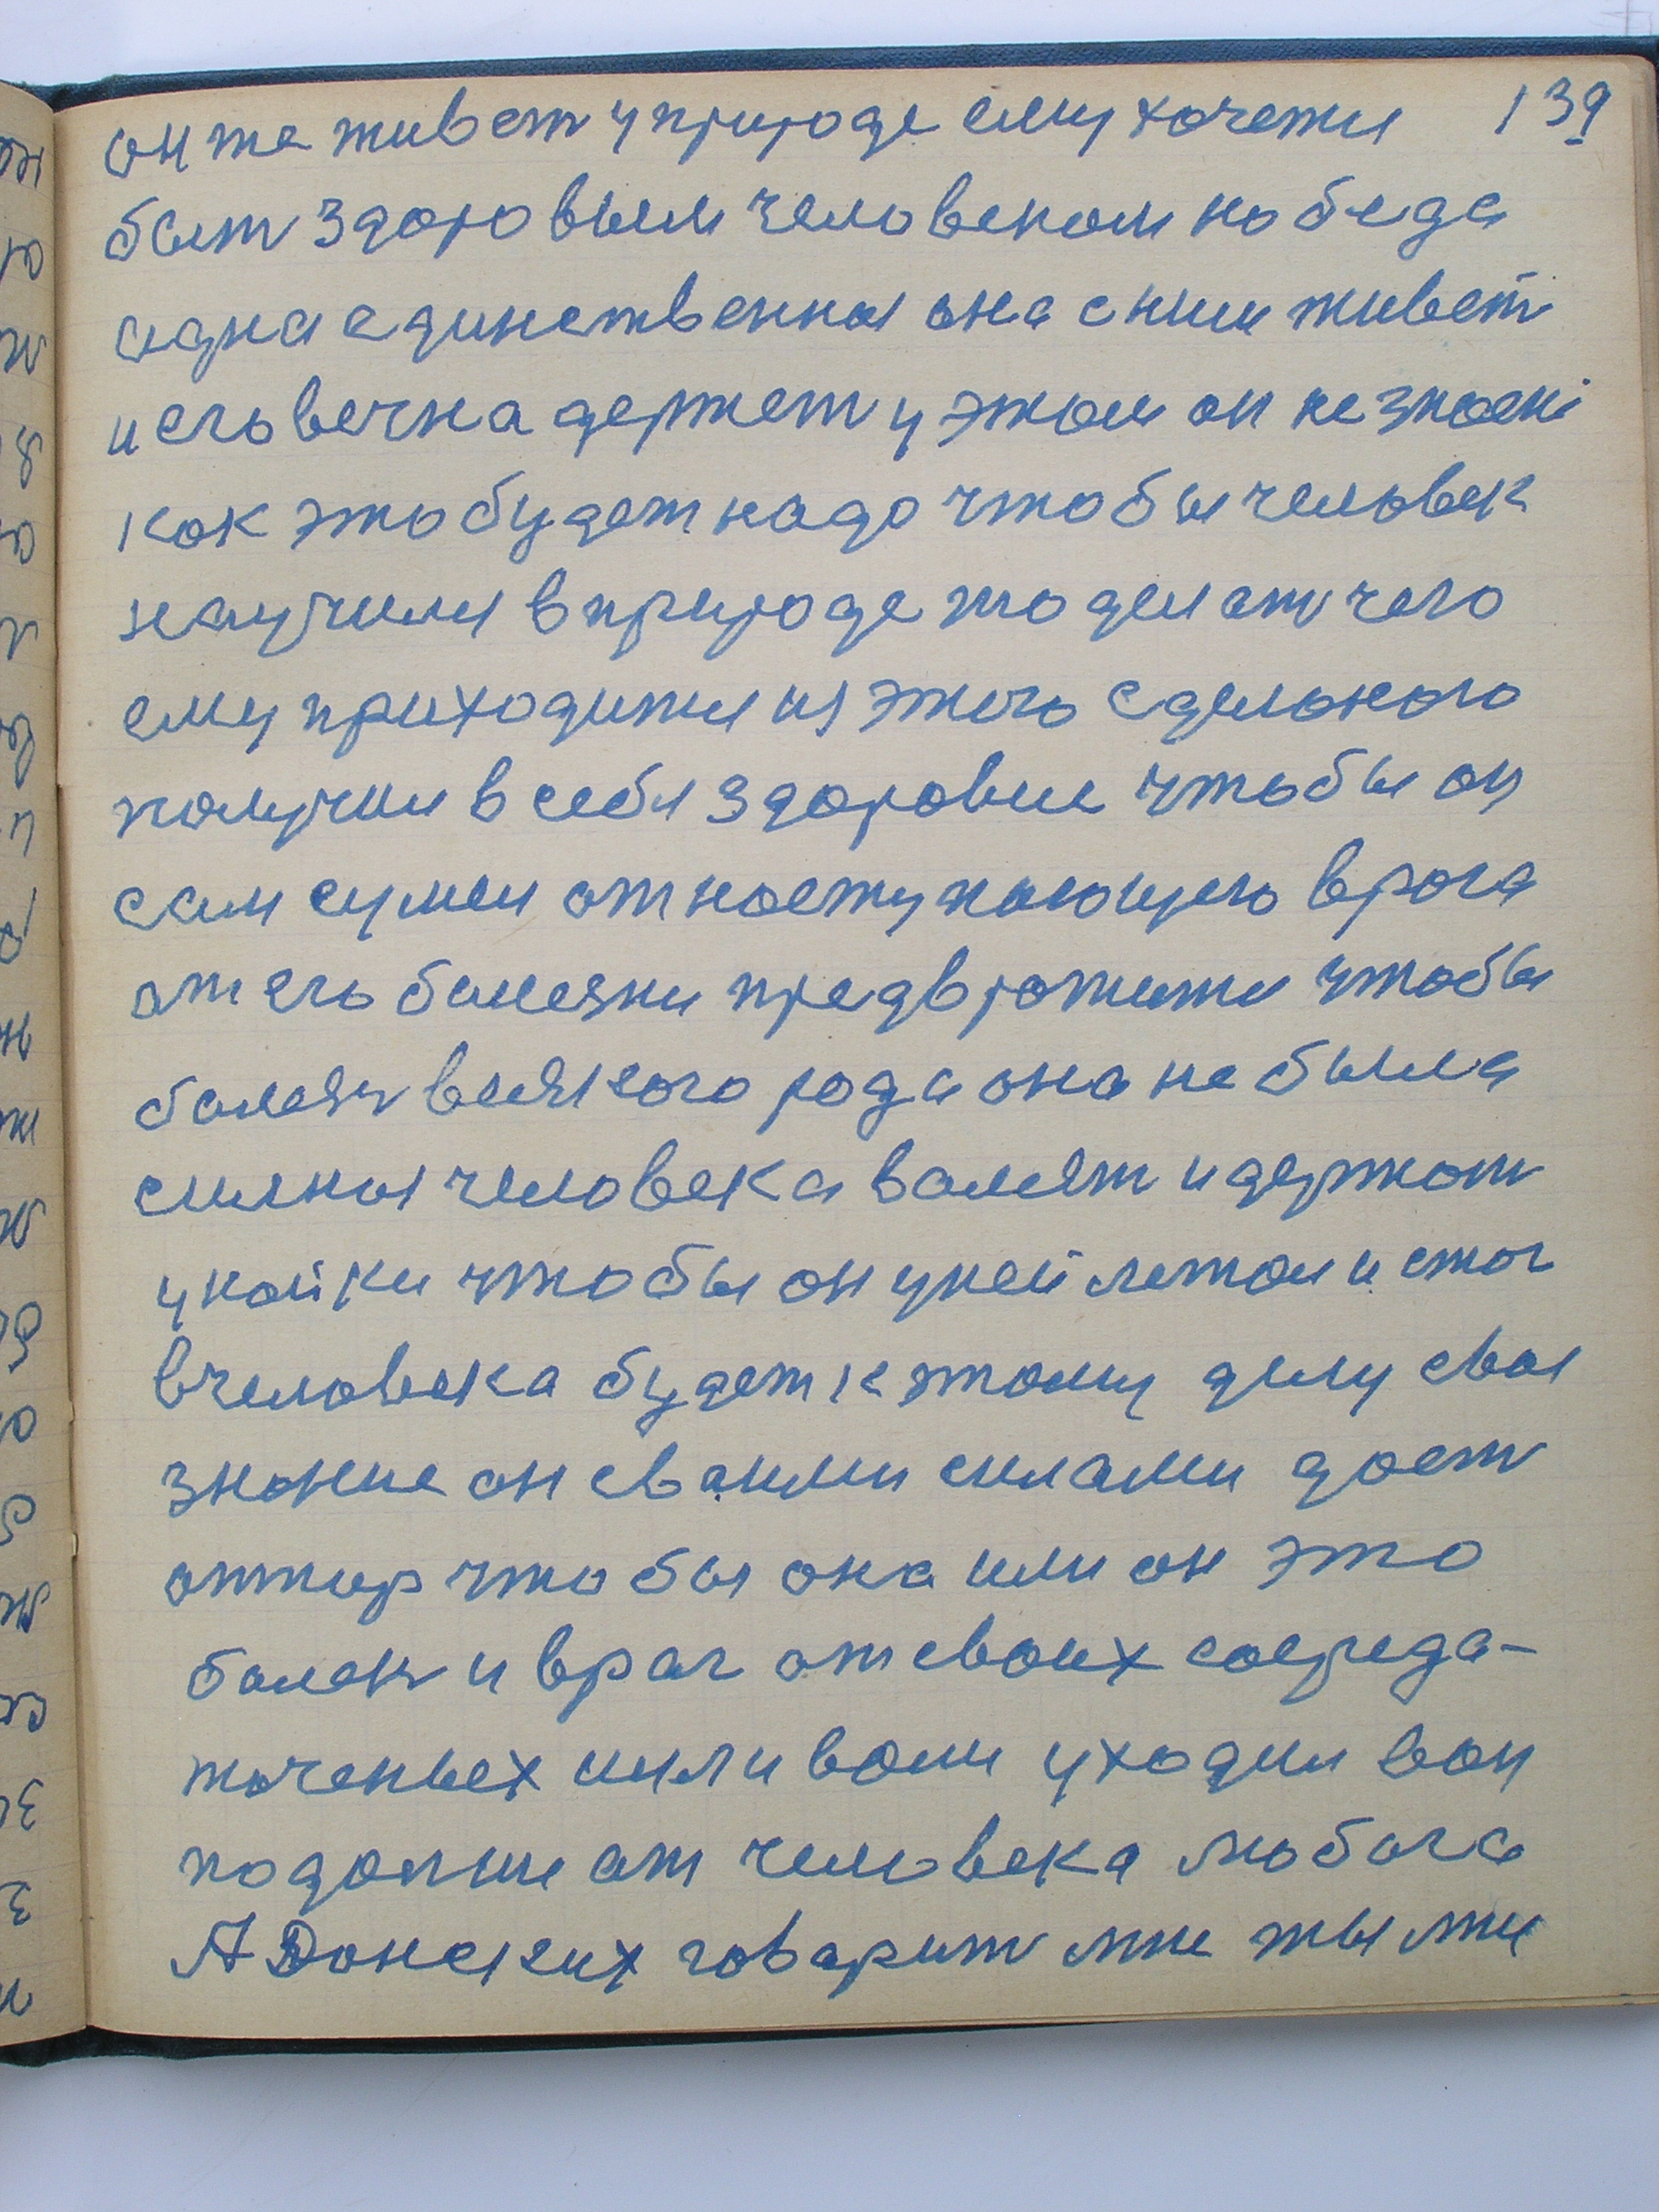 он же живет у природе ему хочетця 139
быт здоровым человеком но беда
одна единственная она с ним живет
и его вечна держет у этом он не знает
как это будет надо чтобы человек
научился в природе то делат чего
ему приходится из этого сделаного
получил в себя здоровие чтобы он
сам сумел от наступающего врага
от его болезни предвротити чтобы
болезн всякого рода она не была
силная человека валяет и держат
у койки чтобы он у ней лежал и стог
в человека будет к этому делу своя
знание он сваими силами дает
отпор чтобы она или он это
болезн и враг от своих сосреда-
точеных сил и воли уходил вон
подалше от человека любога
А Донских говарит мне ты мне